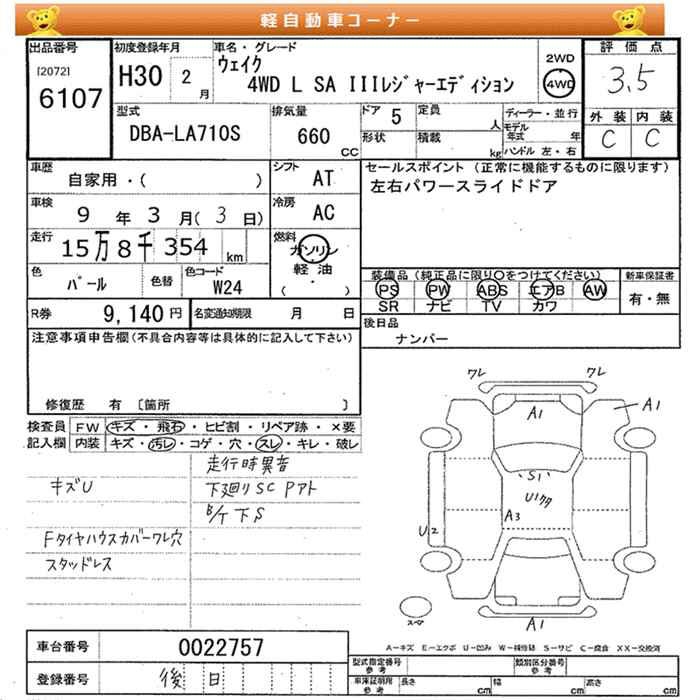 軽自動車コーナー
出品番号 初度登録年月 車名・グレード 2WD 評価点
[2072] H30 2月 ウェイク 4WD 3.5
6107 4WD L SA IIIレジャーエディション
型式 排気量 ドア 5 定員 人 ディーラー・並行 外装 内装
DBA-LA710S 660 CC 形状 積載 kg モデル年式 年 C C
ハンドル 左・右
車歴 シフト セールスポイント (正常に機能するものに限ります)
自家用・( ) AT 左右パワースライドドア
車検 冷房
9 年 3 月 ( 3 日) AC
走行 燃料
15万8千354 km ガソリン
軽油
( ・ )
色 色替 色コード 装備品 (純正品に限り○をつけてください) 新車保証書
パール W24 PS PW ABS エアB AW 有・無
SR ナビ TV カワ
R券 9,140円 名変通知期限 月 日 後日品
ナンバー
注意事項申告欄(不具合内容等は具体的に記入して下さい)
修復歴 有 〔箇所 〕
検査員 FW キズ・飛石・ヒビ割・リペア跡・×要
記入欄 内装 キズ・汚レ・コゲ・穴・スレ・キレ・破レ
走行時異音
キズU 下廻りSC Pアト
B/ケ下S
Fタイヤハウスカバーワレ穴
スタッドレス
ワレ ワレ
A1 A1
S1
U1多
A3
U2
A1
スペア
A-キズ E-エクボ U-凹み W-補修跡 S-サビ C-腐食 XX-交換済
車台番号 0022757
登録番号 後日
型式指定番号 参考 類別区分番号 参考
車庫証明用 参考 長さ cm 幅 cm 高さ cm